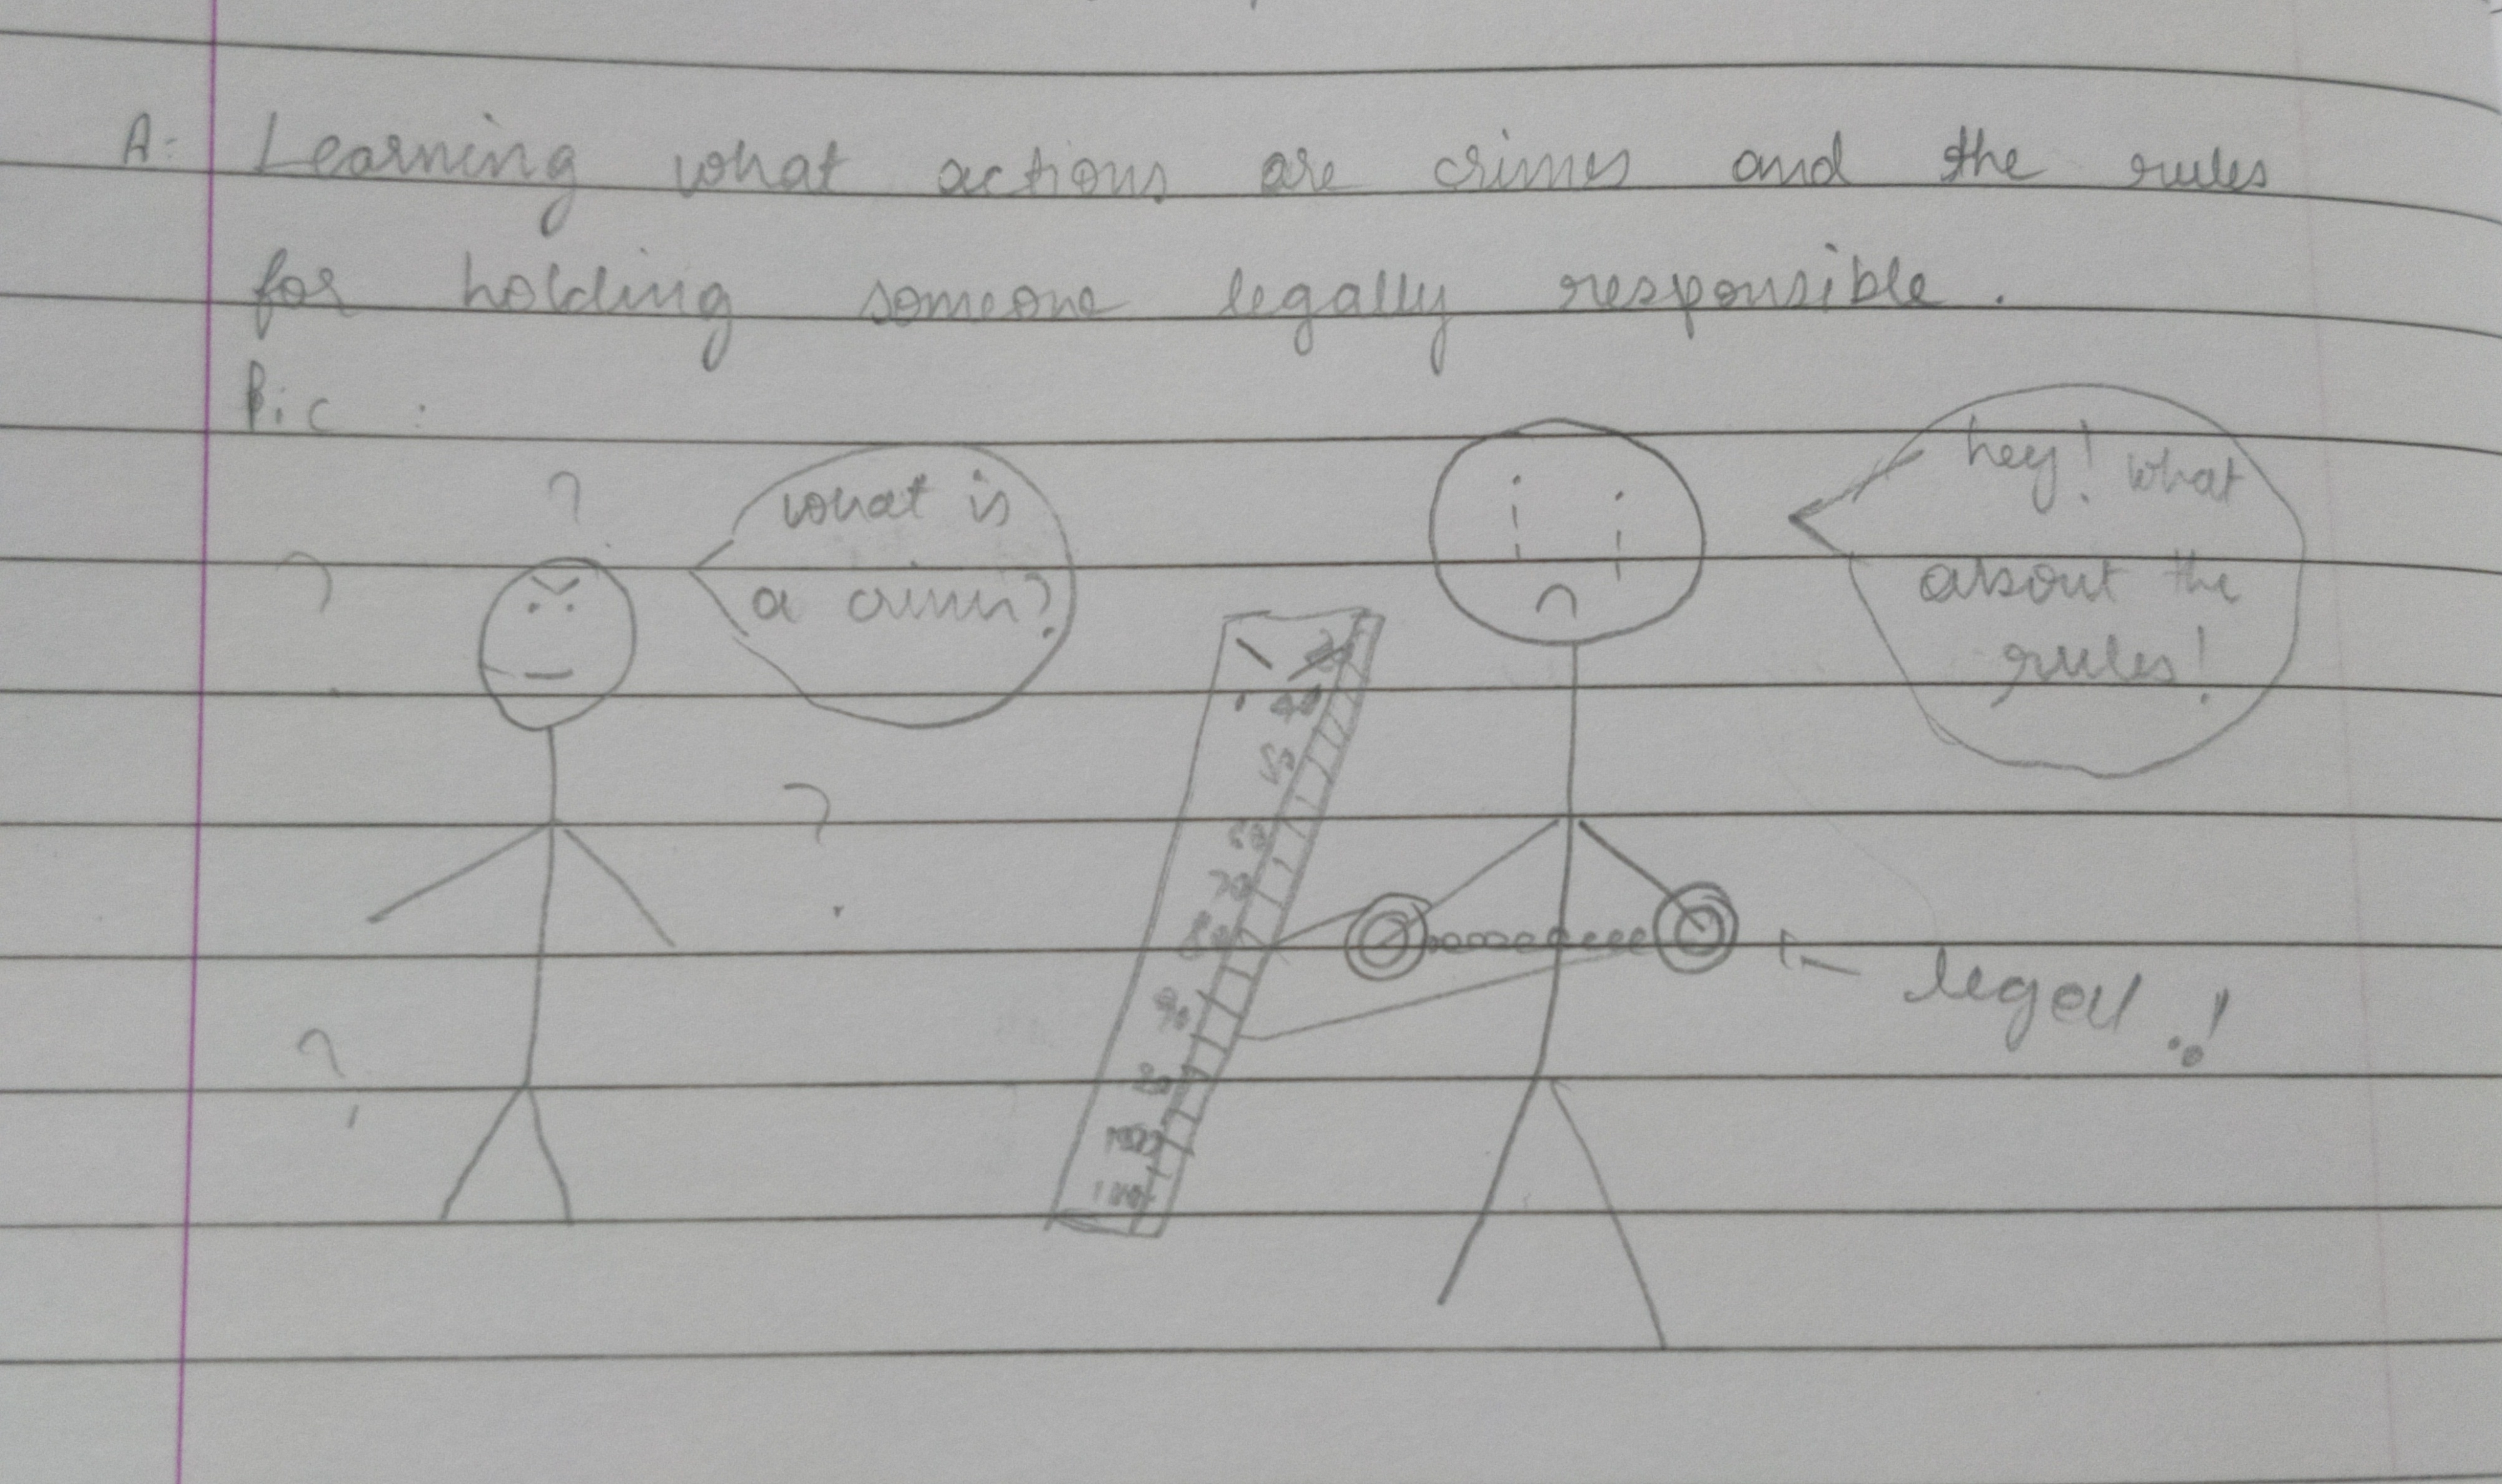 A:- Learning what actions are crimes and the rules
for holding someone legally responsible.
Pic :
?
?
what is
a crime?
hey! what
about the
rules!
?
?
50
60
70
80
90
legal !